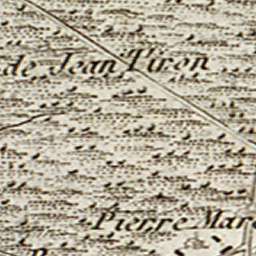 de Jean Tiron
Pierre Mar